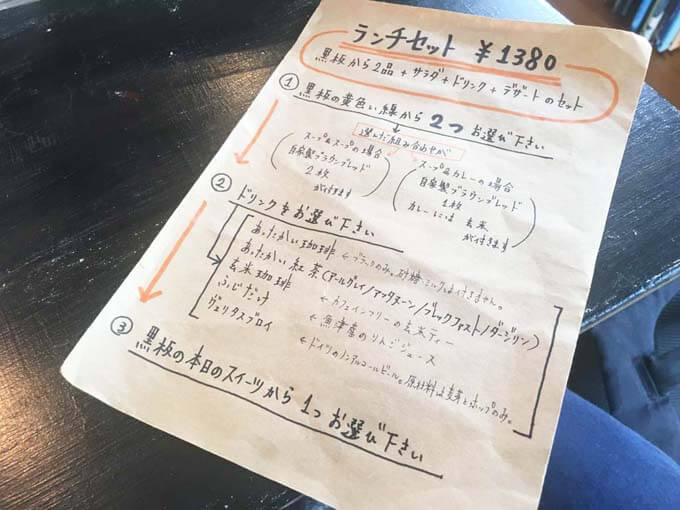 ランチセット ¥1380
黒板から2品+サラダ+ドリンク+デザートのセット
① 黒板の黄色い線から2つお選び下さい
選んだ組み合わせが
スープ&スープの場合
自家製ブラウンブレッド
2枚
が付きます
スープ&カレーの場合
自家製ブラウンブレッド
1枚
カレーには玄米
が付きます
② ドリンクをお選び下さい
あったかい珈琲 ←ブラックのみ。砂糖ミルクは付きません。
あったかい紅茶(アールグレイ/アフタヌーン/ブレックファスト/ダージリン)
玄米珈琲 ←カフェインフリーの玄米ティー
ふじだけ ←魚津産のりんごジュース
ヴェリタスブロイ ←ドイツのノンアルコールビール。原材料は麦芽とホップのみ。
③ 黒板の本日のスイーツから1つお選び下さい